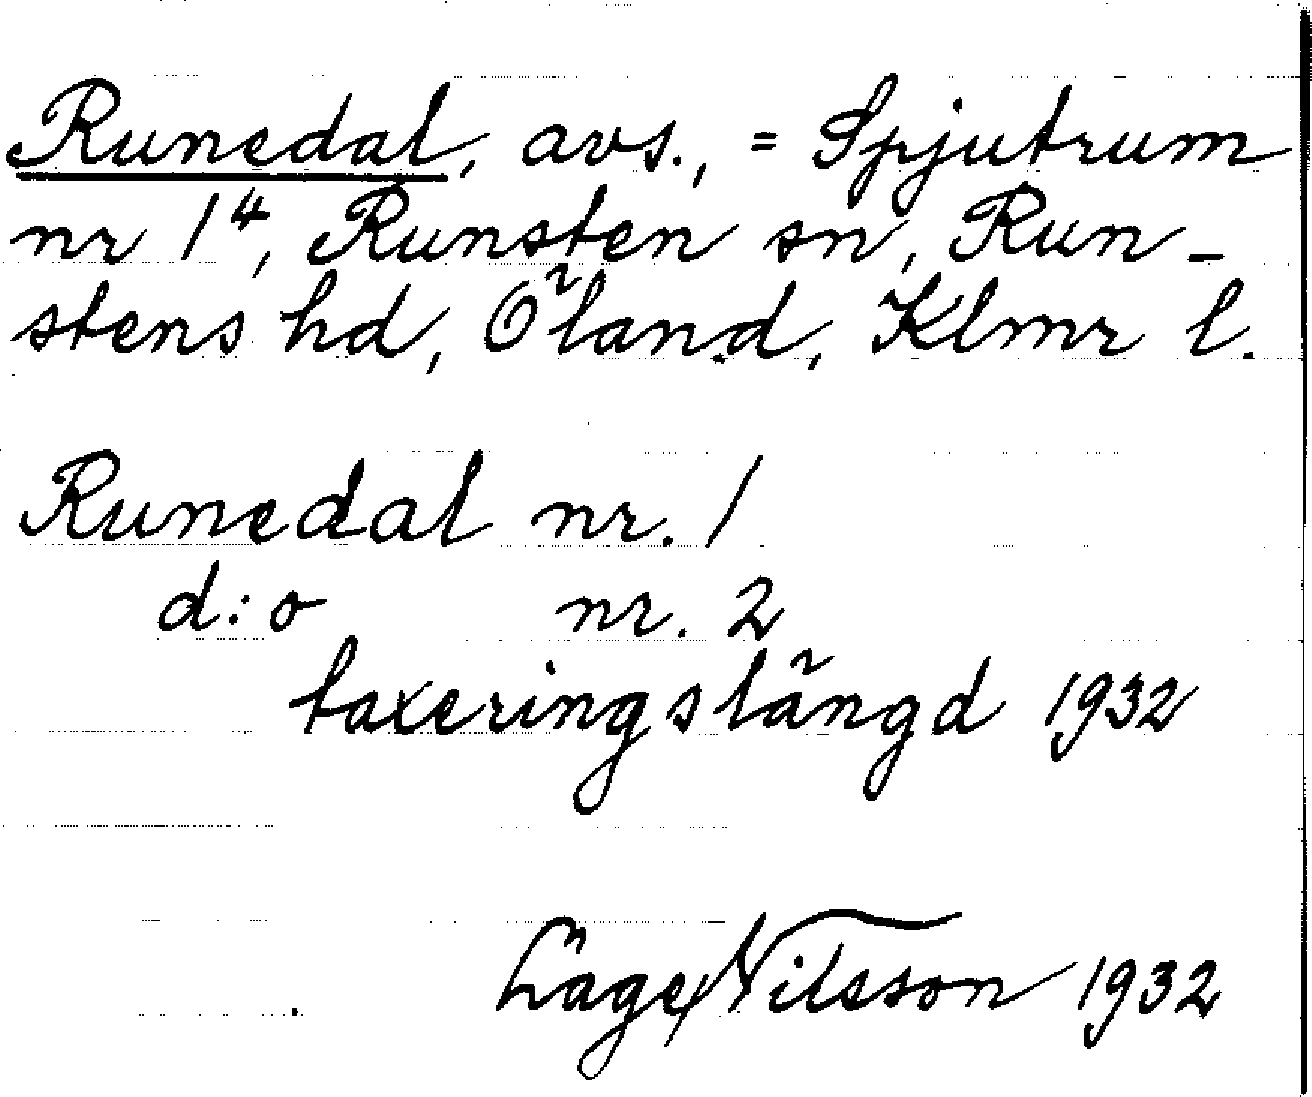 Runedal, avs., = Spjutrum
nr 1⁴, Runsten sn, Run-
stens hd, Öland, Klmr l.
Runedal nr. 1
d:o nr. 2
taxeringslängd 1932
Låge Nilsson 1932